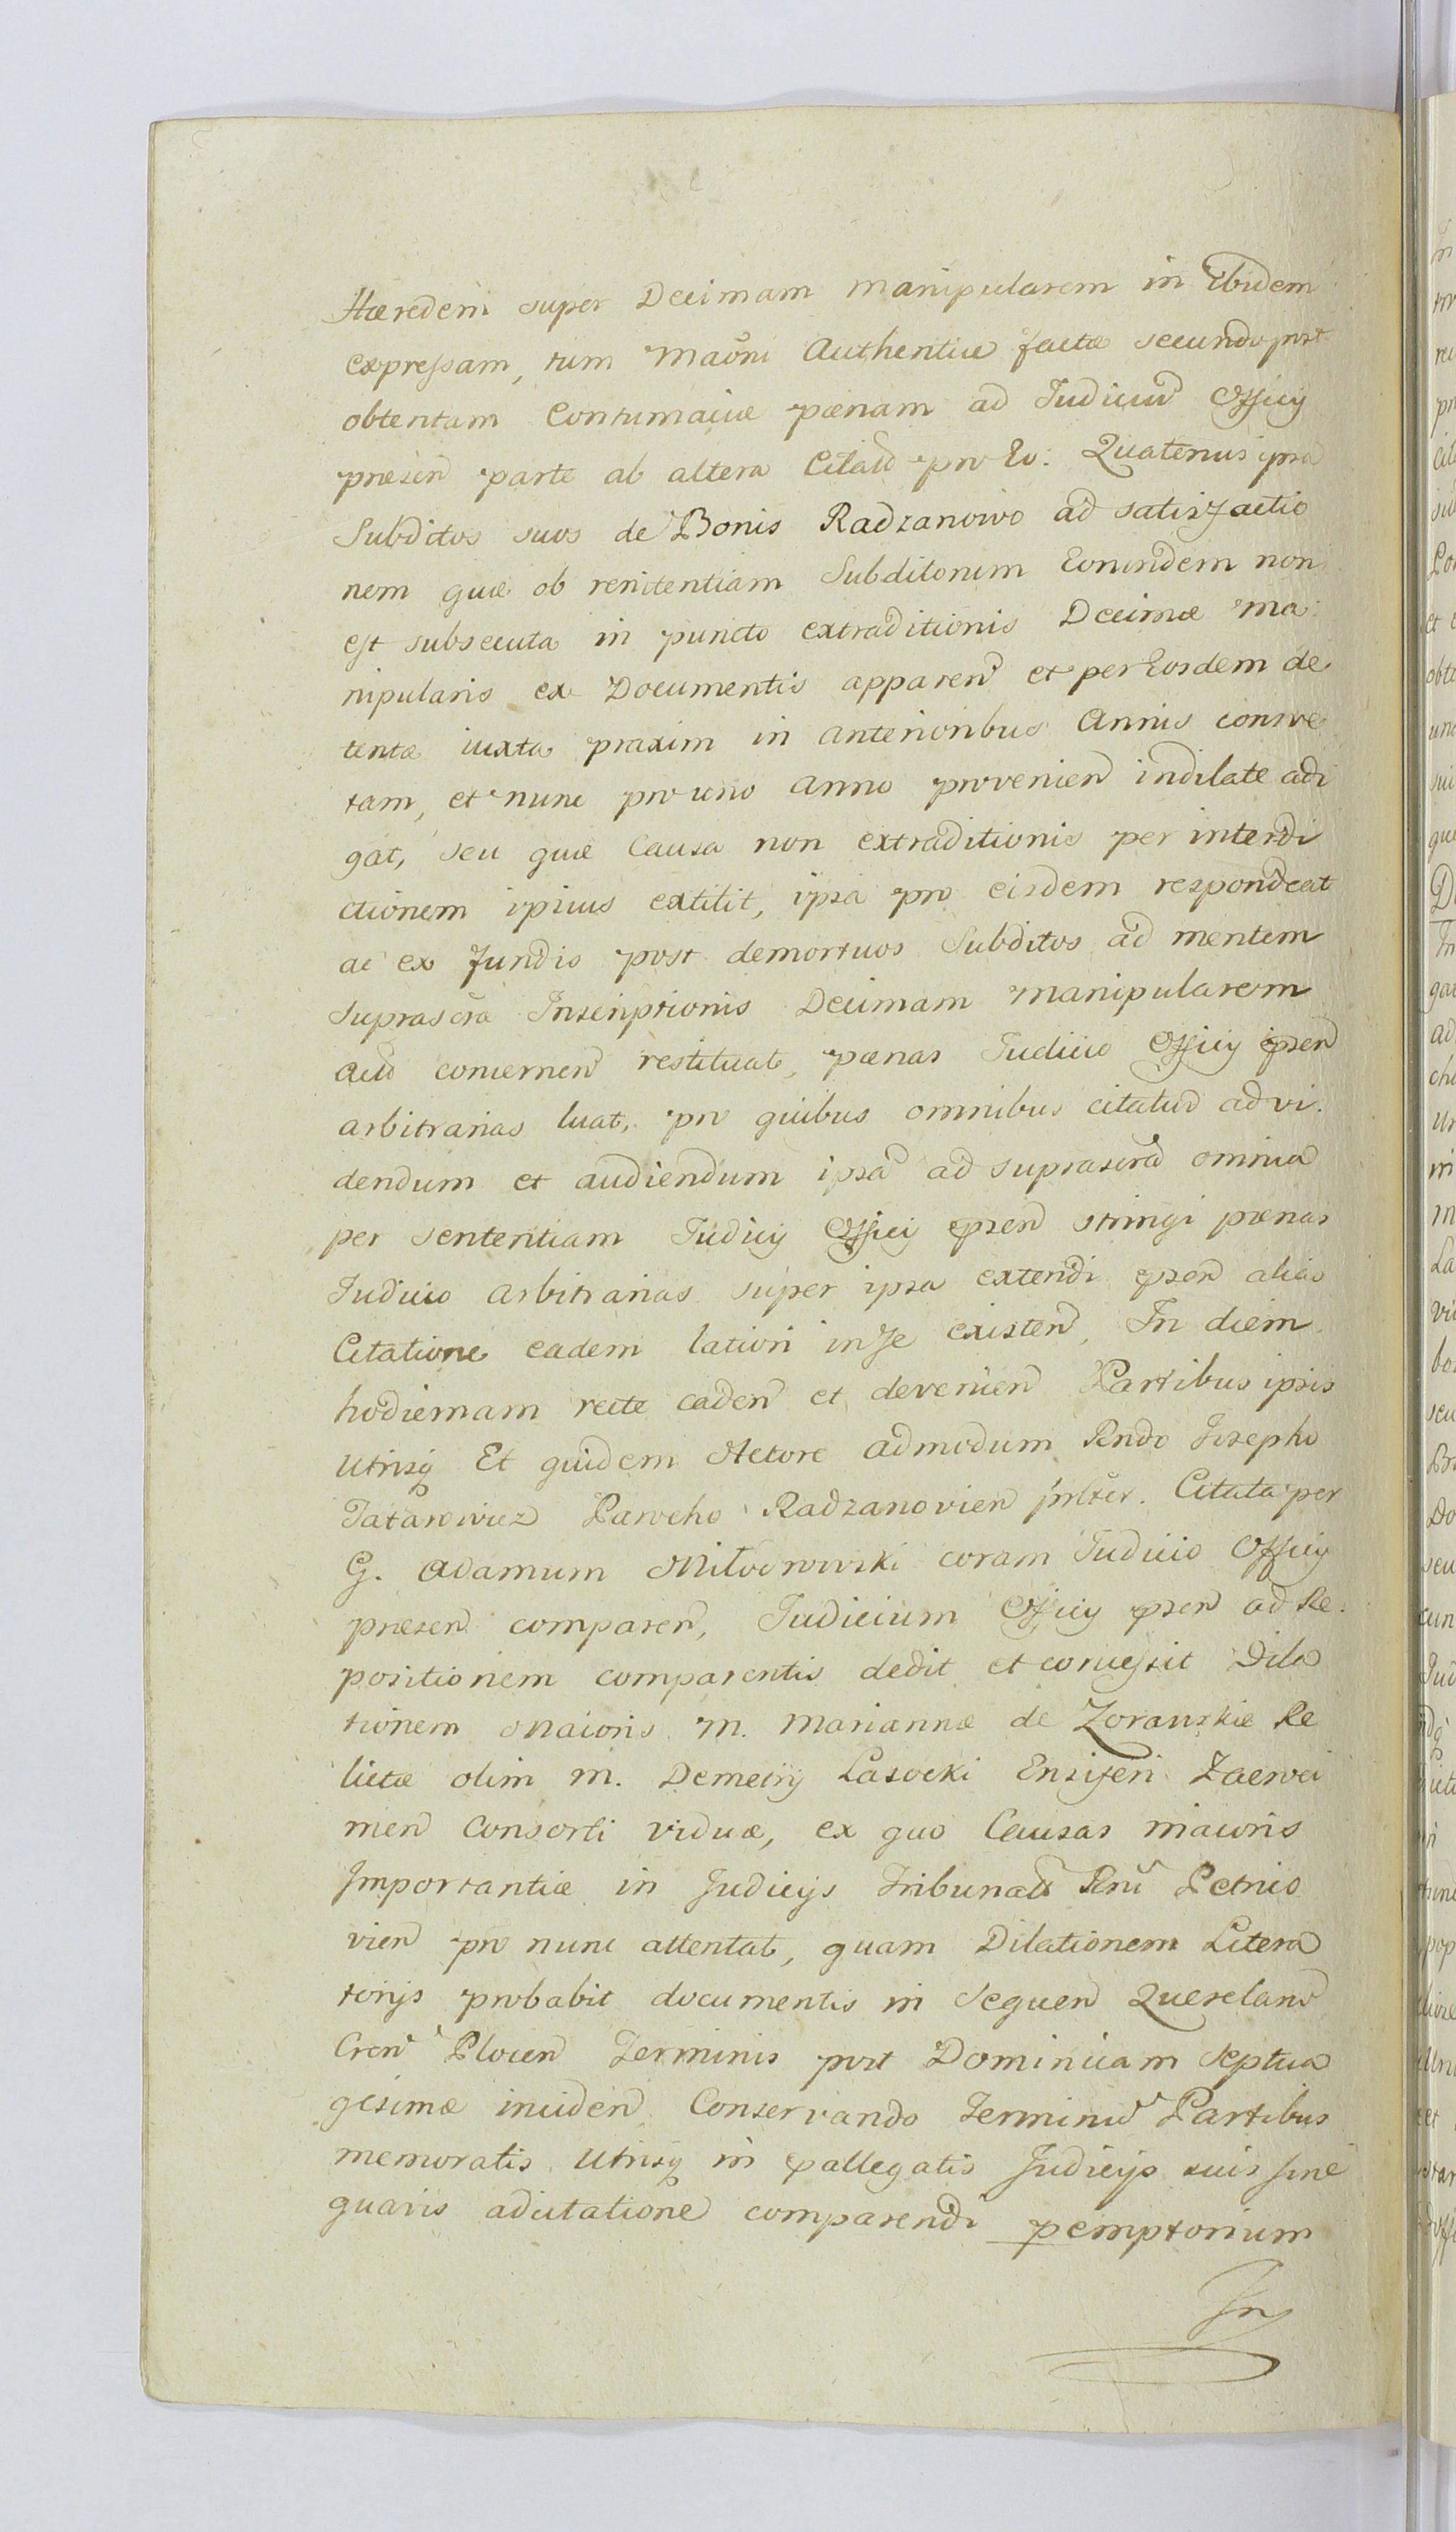 Hæredem super Decimam manipularem in Ibidem
expressam, tum Maōni Authentice factæ secundo post
obtentam Contumaciæ pœnam ad Judiciū Officij
præsen parte ab altera Citatā pro Eo: Quatenus ipsa
Subditos suos de Bonis Radzanowo ad satisfactio
nem quæ ob renitentiam Subditorum Eorundem non
est subsecuta in puncto extraditionis Decimæ ma:
nipularis ex Documentis apparen et per Eosdem de
tentæ iuxta praxim in anterioribus Annis consve
tam, et nunc pro uno Anno provenien indilate adi
gat, seu quæ Causa non extraditionis per interdi
ctionem ipsius extitit, ipsa pro eisdem respondeat
ac ex fundis post demortuos Subditos ad mentem
suprascrā Inscriptionis Decimam manipularem
Actō concernen restituat, pœnas Judicio Officij pñsen
arbitrarias luat, pro quibus omnibus citatur ad vi.
dendum et audiendum ipsā ad suprascrā omnia
per sententiam Judicij Officij pñsen stringi pœnas
Judicio arbitrarias super ipsa extendi pñsen alias
Citatione eadem latiori in se existen, In diem
hodiernam recte caden et devenien Partibus ipsis
utrisq Et quidem Actore admodum Rndo Josepho
Tatarowicz Parocho Radzanovien prlter. Citata per
G. Adamum Miłodrowski coram Judicio Officij
præsen comparen, Judicium Officij pñsen ad Re:
positionem comparentis dedit et concessit Dila
tionem Maioris M. Mariannæ de Zorawskie Re
lictæ olim M. Demetrij Lasocki Ensiferi Zacroci
men Consorti viduæ, ex quo Causas maioris
Importantiæ in Judicijs Tribunalꝭ Rnī Petrico
vien pro nunc attentat, quam Dilationem Litera
torijs probabit documentis in Sequen Querelarū
Cren Plocen Terminis post Dominicam Septua
gesimæ inciden Conservando Terminū Partibus
memoratis utrisq in pallegatis Judicijs suis sine
quavis adcitatione comparendi pemptorium
In